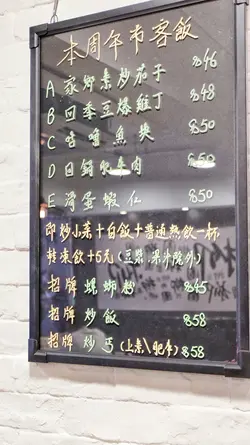 本周午市客飯
A 家鄉素炒茄子 $46
B 四季豆爆雞丁 $48
C 咕嚕魚塊 $50
D 回鍋 牛肉 $50
E 滑蛋蝦仁 $50
即炒小菜+白飯+普通熱飲一杯
轉凍飲+5元(豆漿.果汁除外)
招牌 螺螄粉 $45
招牌 炒飯 $58
招牌 炒丐(上素\肥牛) $58